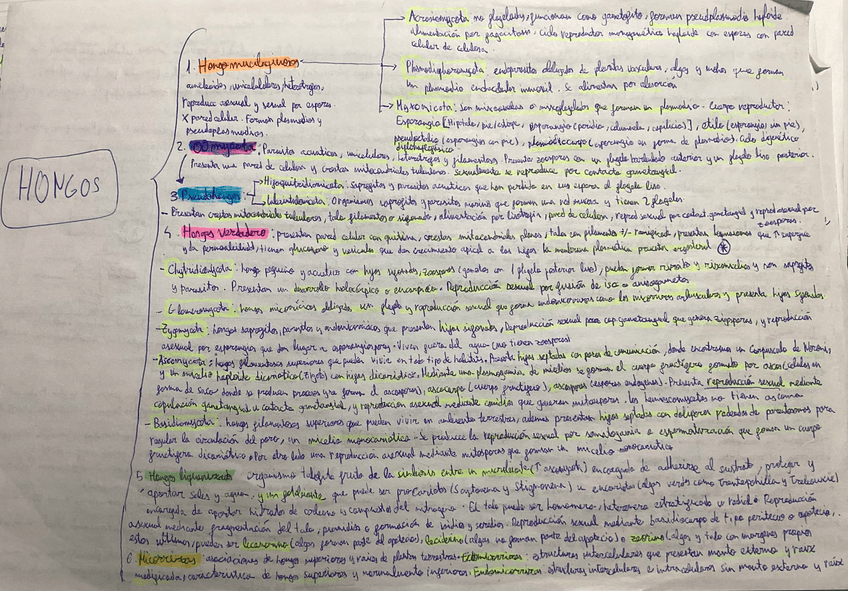 HONGOS
Acrasiomycota no flagelados, funcionan como gametofito, forman pseudoplasmodio haploide
alimentación por fagocitosis. Ciclo reproductor monogenético haploide con esporas con pared
celular de celulosa.
1. Hongos mucilaginosos
ameboides, unicelulares, heterótrofos,
reproduce asexual y sexual por esporas.
X pared celular. Forman plasmodios y
pseudoplasmodios.
Plasmodiophoromycota: endoparásito obligado de plantas vasculares, algas y que forman
un plasmodio inmóvil. Se alimentan por absorción
Myxomicota: son o que forman un plasmodio. Cuerpo reproductor:
Esporangio [Hipotalo, pie/estipe, (peridio, columela, capilicio)], (esporangios sin pie),
(esporangio con pie), plasmodiocarpo (esporangio en forma de plasmodio). Ciclo digenético
2. Oomycota: Parásitos acuáticos, unicelulares, heterótrofos y filamentosos. Presenta zoosporas con un flagelo anterior y un flagelo liso posterior.
Presenta una pared de celulosa y crestas mitocondriales tubulares. Sexualmente se reproduce por contacto gametangial.
3. Pseudohongos
Hifoquitridiomicota: Saprófitos y parásitos acuáticos que han perdido en sus esporas el flagelo liso.
Labirintulomicota: Organismos saprófitos y parásitos marinos que forman una red mucosa y tienen 2 flagelos
- Presentan crestas mitocondriales tubulares, talo filamentoso sifonado, alimentación por, pared de celulosa, reprod sexual por contact. gametangial y reprod asexual por
zoosporas.
4. Hongos Verdaderos: presentan pared celular con quitina, crestas mitocondriales planas, talo con filamentos +/- ramificado, presentan que ↑ superficie
y la permeabilidad, tienen glucógeno y vesículas que dan crecimiento apical a las hifas, la membrana plasmática presenta ergosterol *
- Chytridiomycota: hongo pequeño y acuático con hifas sifonadas, zoosporas (gametos con 1 flagelo posterior liso), pueden formar y rizomicelios y son saprófitos
y parásitos. Presentan un desarrollo holocárpico o eucárpico. Reproducción sexual por fusión de iso o anisogametos
- Glomeromycota: hongos micorrícicos obligados, sin flagelo y reproducción sexual que forma como las micorrizas arbusculares y presenta hifas sifonadas
- Zygomycota: hongos saprófitos, parásitos y que presentan hifas sifonadas, Reproducción sexual por cop. gametangial que genera zigosporas, y reproducción
asexual por esporangios que dan lugar a aplanosporas. Viven fuera del agua (no tienen zoosporas)
- Ascomycota: hongos filamentosos superiores que pueden vivir en todo tipo de hábitats. Presenta hifas septadas con poros de comunicación, donde encontramos un Corpúsculo de Woronin,
y un micelio haploide dicariótico con hifas dicarióticas. Mediante una plasmogamia de micelios se forma el cuerpo fructífero formado por ascas (células en
forma de saco donde se producen y se forman el ascosporas), ascocarpo (cuerpo fructífero), ascosporas (esporas endógenas). Presenta reproducción sexual mediante
copulación gametangial o contacto gametangial, y reproducción asexual mediante conidios que generan mitosporas. Los hemiascomycetes no tienen ascoma
- Basidiomycota: hongos filamentosos superiores que pueden vivir en ambiente terrestres, además presentan hifas septadas con doliporos rodeados de parentosomas para
regular la circulación del poro, un micelio monocariótico. Se produce la reproducción sexual por somatogamia o espermatización que forman un cuerpo
fructífero dicariótico. Por otro lado una reproducción asexual mediante mitosporas que forman un micelio monocariótico
5. Hongos liquenizados: organismo talofito fruto de la simbiosis entre un micobionte (↑ ascomycota) encargado de adherirse al sustrato, proteger y
aportar sales y agua, y un fotobionte que puede ser procariotas (Scytonema y Stigonema) u eucariota (algas verdes como Trentepohlia y Trebouxia)
encargada de aportar hidrato de carbono y compuestos del nitrógeno. El talo puede ser homómero, heterómero estratificado o radial. Reproducción
asexual mediante fragmentación del talo, o formación de isidios y soredios. Reproducción sexual mediante de tipo peritecio o apotecio,
estos últimos, pueden ser lecanorino (algas forman parte del apotecio), lecideino (algas no forman parte del apotecio) o zeorino (algas y talo con margenes propios)
6. Micorrizas: asociaciones de hongos superiores y raíces de plantas terrestres. Ectomicorrizas: estructuras intercelulares que presentan manto externo y raíz
modificada, característica de hongos superiores y normalmente inferiores. Endomicorrizas: estructuras intercelulares e intracelulares sin manto externo y raíz